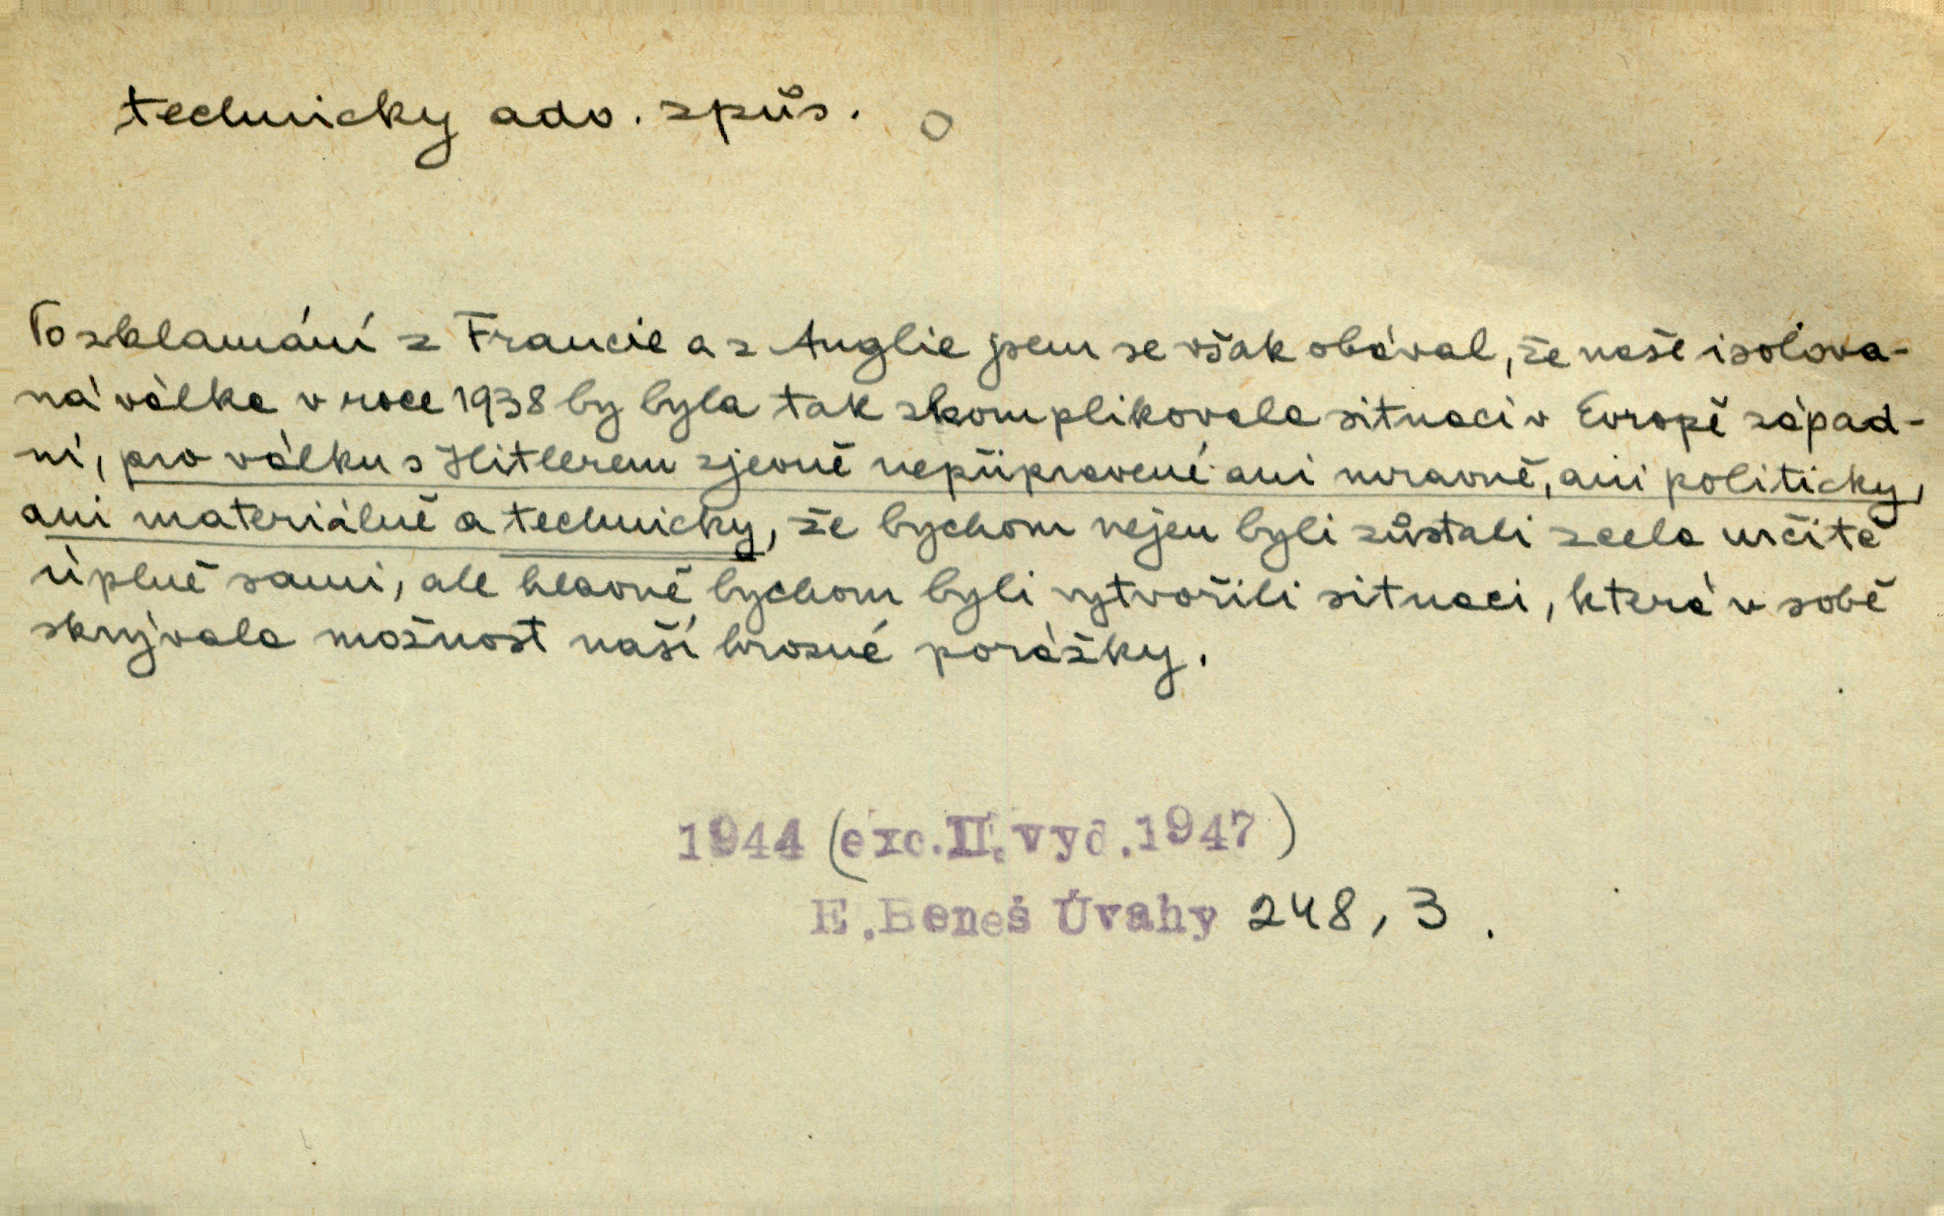 technicky adv. způs. o
Po zklamání z Francie a z Anglie jsem se však obával, že naše isolova-
ná válka v roce 1938 by byla tak zkomplikovala situaci v Evropě západ-
ní, pro válku s Hitlerem zjevně nepřipravené ani mravně, ani politicky,
ani materiálně a technicky, že bychom nejen byli zůstali zcela určitě
úplně sami, ale hlavně bychom byli vytvořili situaci, která v sobě
skrývala možnost naší hrozné porážky.
1944 (exc.II.vyd.1947)
E.Beneš Úvahy 248, 3.